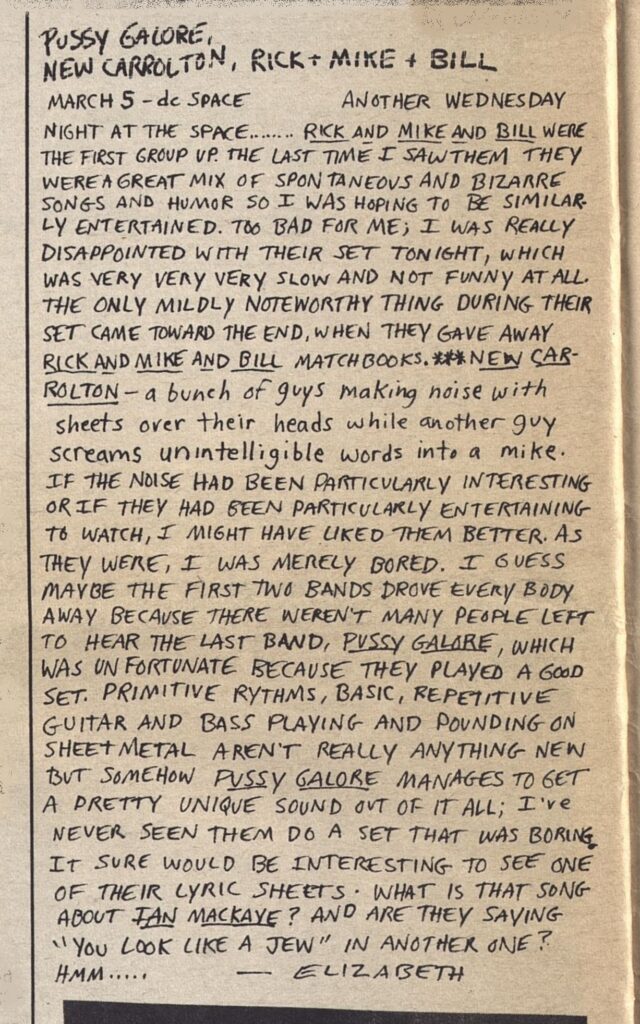 PUSSY GALORE,
NEW CARROLTON, RICK + MIKE + BILL
MARCH 5 - dc SPACE ANOTHER WEDNESDAY
NIGHT AT THE SPACE........ RICK AND MIKE AND BILL WERE
THE FIRST GROUP UP. THE LAST TIME I SAW THEM THEY
WERE A GREAT MIX OF SPONTANEOUS AND BIZARRE
SONGS AND HUMOR SO I WAS HOPING TO BE SIMILAR-
LY ENTERTAINED. TOO BAD FOR ME; I WAS REALLY
DISAPPOINTED WITH THEIR SET TONIGHT, WHICH
WAS VERY VERY VERY SLOW AND NOT FUNNY AT ALL.
THE ONLY MILDLY NOTEWORTHY THING DURING THEIR
SET CAME TOWARD THE END, WHEN THEY GAVE AWAY
RICK AND MIKE AND BILL MATCHBOOKS. *** NEW CAR-
ROLTON - a bunch of guys making noise with
sheets over their heads while another guy
screams unintelligible words into a mike.
IF THE NOISE HAD BEEN PARTICULARLY INTERESTING
OR IF THEY HAD BEEN PARTICULARLY ENTERTAINING
TO WATCH, I MIGHT HAVE LIKED THEM BETTER. AS
THEY WERE, I WAS MERELY BORED. I GUESS
MAYBE THE FIRST TWO BANDS DROVE EVERY BODY
AWAY BECAUSE THERE WEREN'T MANY PEOPLE LEFT
TO HEAR THE LAST BAND, PUSSY GALORE, WHICH
WAS UNFORTUNATE BECAUSE THEY PLAYED A GOOD
SET. PRIMITIVE RYTHMS, BASIC, REPETITIVE
GUITAR AND BASS PLAYING AND POUNDING ON
SHEET METAL AREN'T REALLY ANYTHING NEW
BUT SOMEHOW PUSSY GALORE MANAGES TO GET
A PRETTY UNIQUE SOUND OUT OF IT ALL; I've
NEVER SEEN THEM DO A SET THAT WAS BORING.
IT SURE WOULD BE INTERESTING TO SEE ONE
OF THEIR LYRIC SHEETS. WHAT IS THAT SONG
ABOUT IAN MACKAYE? AND ARE THEY SAYING
"YOU LOOK LIKE A JEW" IN ANOTHER ONE?
HMM..... — ELIZABETH